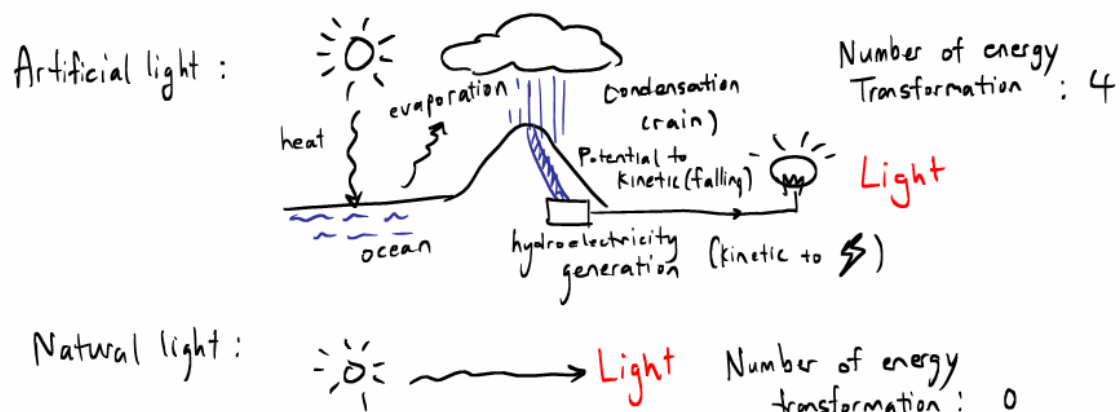 Artificial light :
heat
evaporation
Condensation
(rain)
Potential to
kinetic (falling)
ocean
hydroelectricity
generation
(kinetic to
)
Light
Number of energy
Transformation : 4
Natural light :
Light
Number of energy
transformation : 0